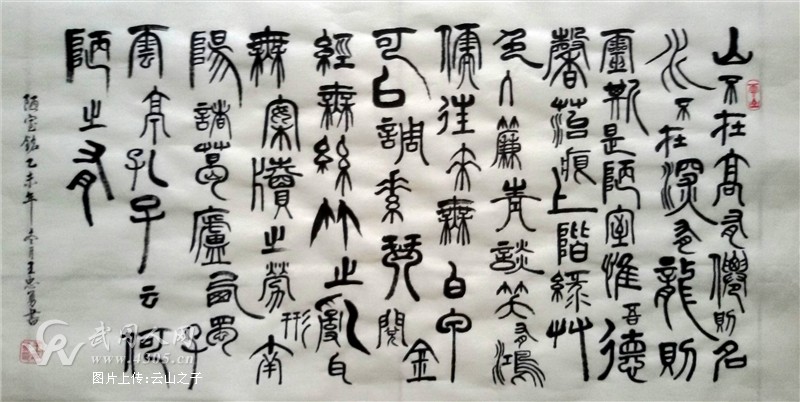 山不在高有僊則名
水不在深有龍則
靈斯是陋室惟吾德
馨苔痕上階緑艸
色入簾青談笑有鴻
儒往来無白丁
可以調素琴閱金
經無絲竹之亂耳
無案牘之勞形南
陽諸葛廬西蜀子
雲亭孔子云何
陋之有
陋室銘乙未年月王忠勇書
武冈人网
www.4305.cn
图片上传:云山之子